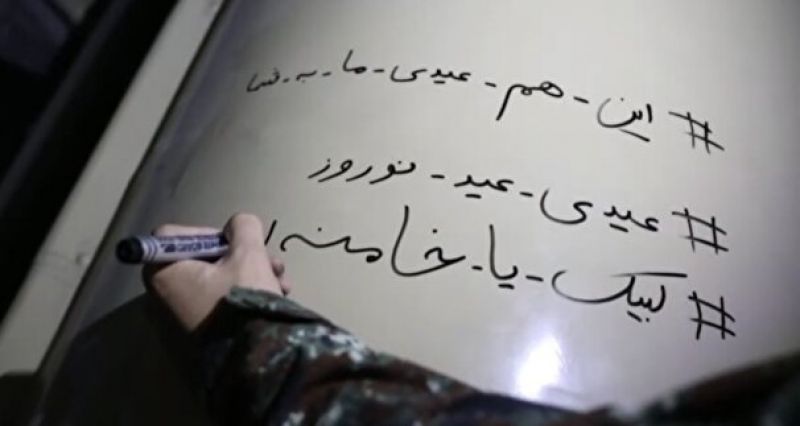 #این-هم-عیدی-ما-به-شما
#عیدی-عید-نوروز
#لبیک-یا-خامنه‌ا